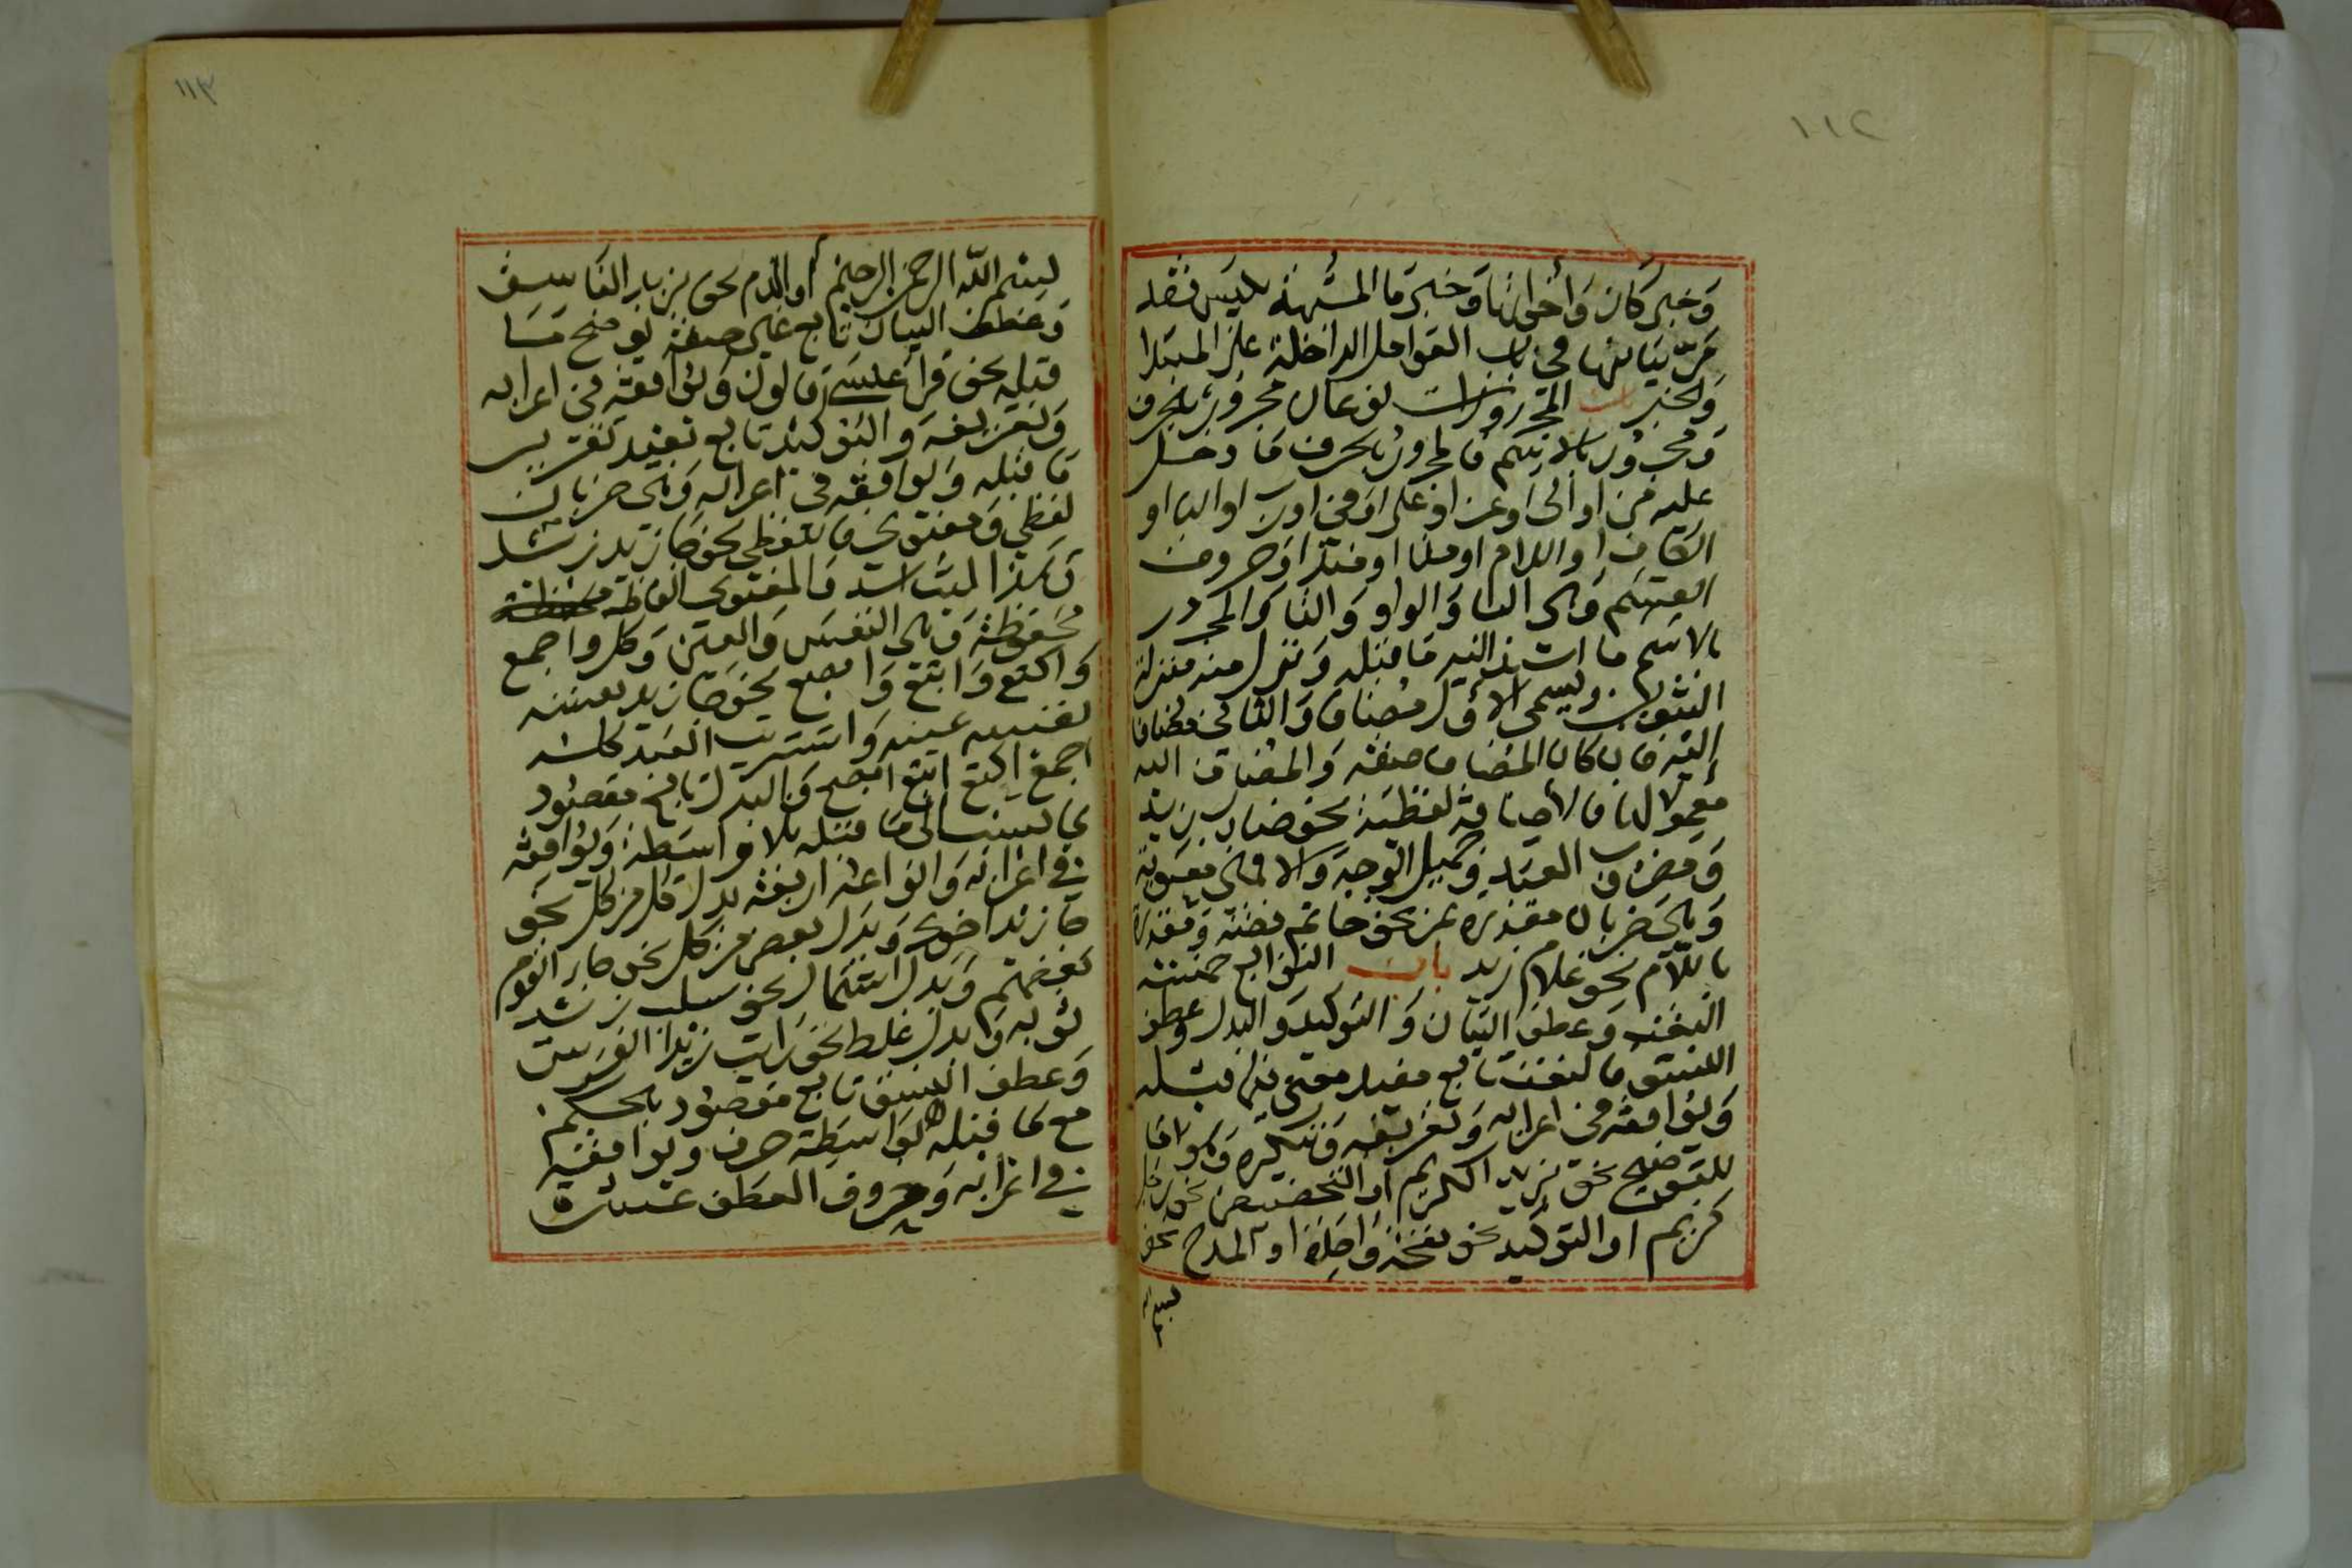 ١١٢
وَخبر كَان وَأخواتها وَخبر مَا المشبهة بليس فقد
مَرّ بيَانها فى باب العوامل الداخلة على المبتدا
وَالخبر باب المجرورات نوعان مجرور بالحرف
وَمجرور بالاسم فالمجرور بالحرف مَا دخل
عليه من او الى او عن او على او فى او رب او البا او
الكاف او اللام او منذ او مذ او حروف
القسم وَهى البا وَالواو وَالتا وَالمجرور
بالاسم ما اسند اليه مَا قبله وَنزل منه منزلة
التنوين ويسمى الاول مضافا وَالثانى مضافا
اليه فان كان المضاف صفة وَالمضاف اليه
معمولا لها فالأضافة لفظية نحو ضارب زيد
وَمضروب العبد وجميل الوجه وَالا فهى معنوية
وَهى ضربان مقدرة بمن نحو خاتم فضة وَمقدرة
باللام نحو غلام زيد باب التوابع خمسة
النعت وَعطف البيان وَالتوكيد وَالبدل وعطف
النسق فالنعت تابع مفيد معنى فيما قبله
وَيوافقه فى اعرابه وَتعريفه وَتنكيره وَهو اما
للتوضيح نحو زيد الكريم او التخصيص نحو رجل
كريم او التوكيد نحو نفخة وَاحدة او المدح نحو
بسم الله
١١٣
بسم الله الرحمن الرحيم أو الذم نحو بزيد الفاسق
وَعطف البيان تابع غير صفة يوضح مَا
قبله نحو قرأ عيسى قالون وَيوافقه فى اعرابه
وَتعريفه وَالتوكيد تابع يفيد تقرير
مَا قبله وَيوافقه فى اعرابه وَهو ضربان
لفظى وَمعنوى فاللفظى نحو جا زيد زيد
وَالمعنوى الفاظه
محفوظة وَهى النفس وَالعين وَكل واجمع
وَاكتع وَابتع وَابصع نحو جا زيد نفسه
نفسه عينه وَاشتريت العبد كله
اجمع اكتع ابتع ابصع وَالبدل تابع مقصود
بالنسبة الى مَا قبله بلا وَاسطة وَيوافقه
فى اعرابه وَانواعه اربعة بدل كل من كل نحو
جا زيد اخوك وَبدل بعض من كل نحو جا القوم
بعضهم وَبدل اشتمال نحو سلب زيد
ثوبه وَبدل غلط نحو رايت زيدا الفرس
وَعطف النسق تابع مقصود بالحكم
مع مَا قبله بوَاسطة حرف ويوافقه
فى اعرابه وَحروف العطف عشرة